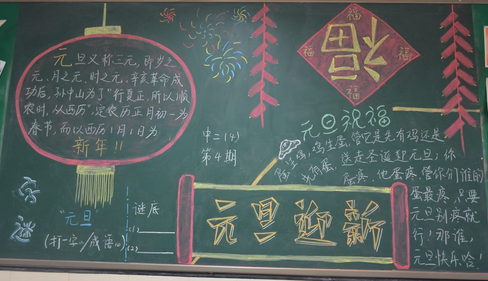 元旦又称三元，即岁之
元、月之元、时之元。辛亥革命成
功后，孙中山为了"行夏正，所以顺
农时，从西历"，定农历正月初一为
春节，而以西历1月1日为
新年！！
福
福
福
福
福
中二（4）
第4期
元旦祝福
蛋生鸡，鸡生蛋，管它是先有鸡还是
先有蛋
送走圣诞迎元旦；你
蛋疼，他蛋疼，管你们谁的
蛋最疼，只要
元旦别疼就
行！那谁，
元旦快乐哈！
字谜
"元旦
（打一字/成语）
谜底
(1)
(2)
元旦迎新